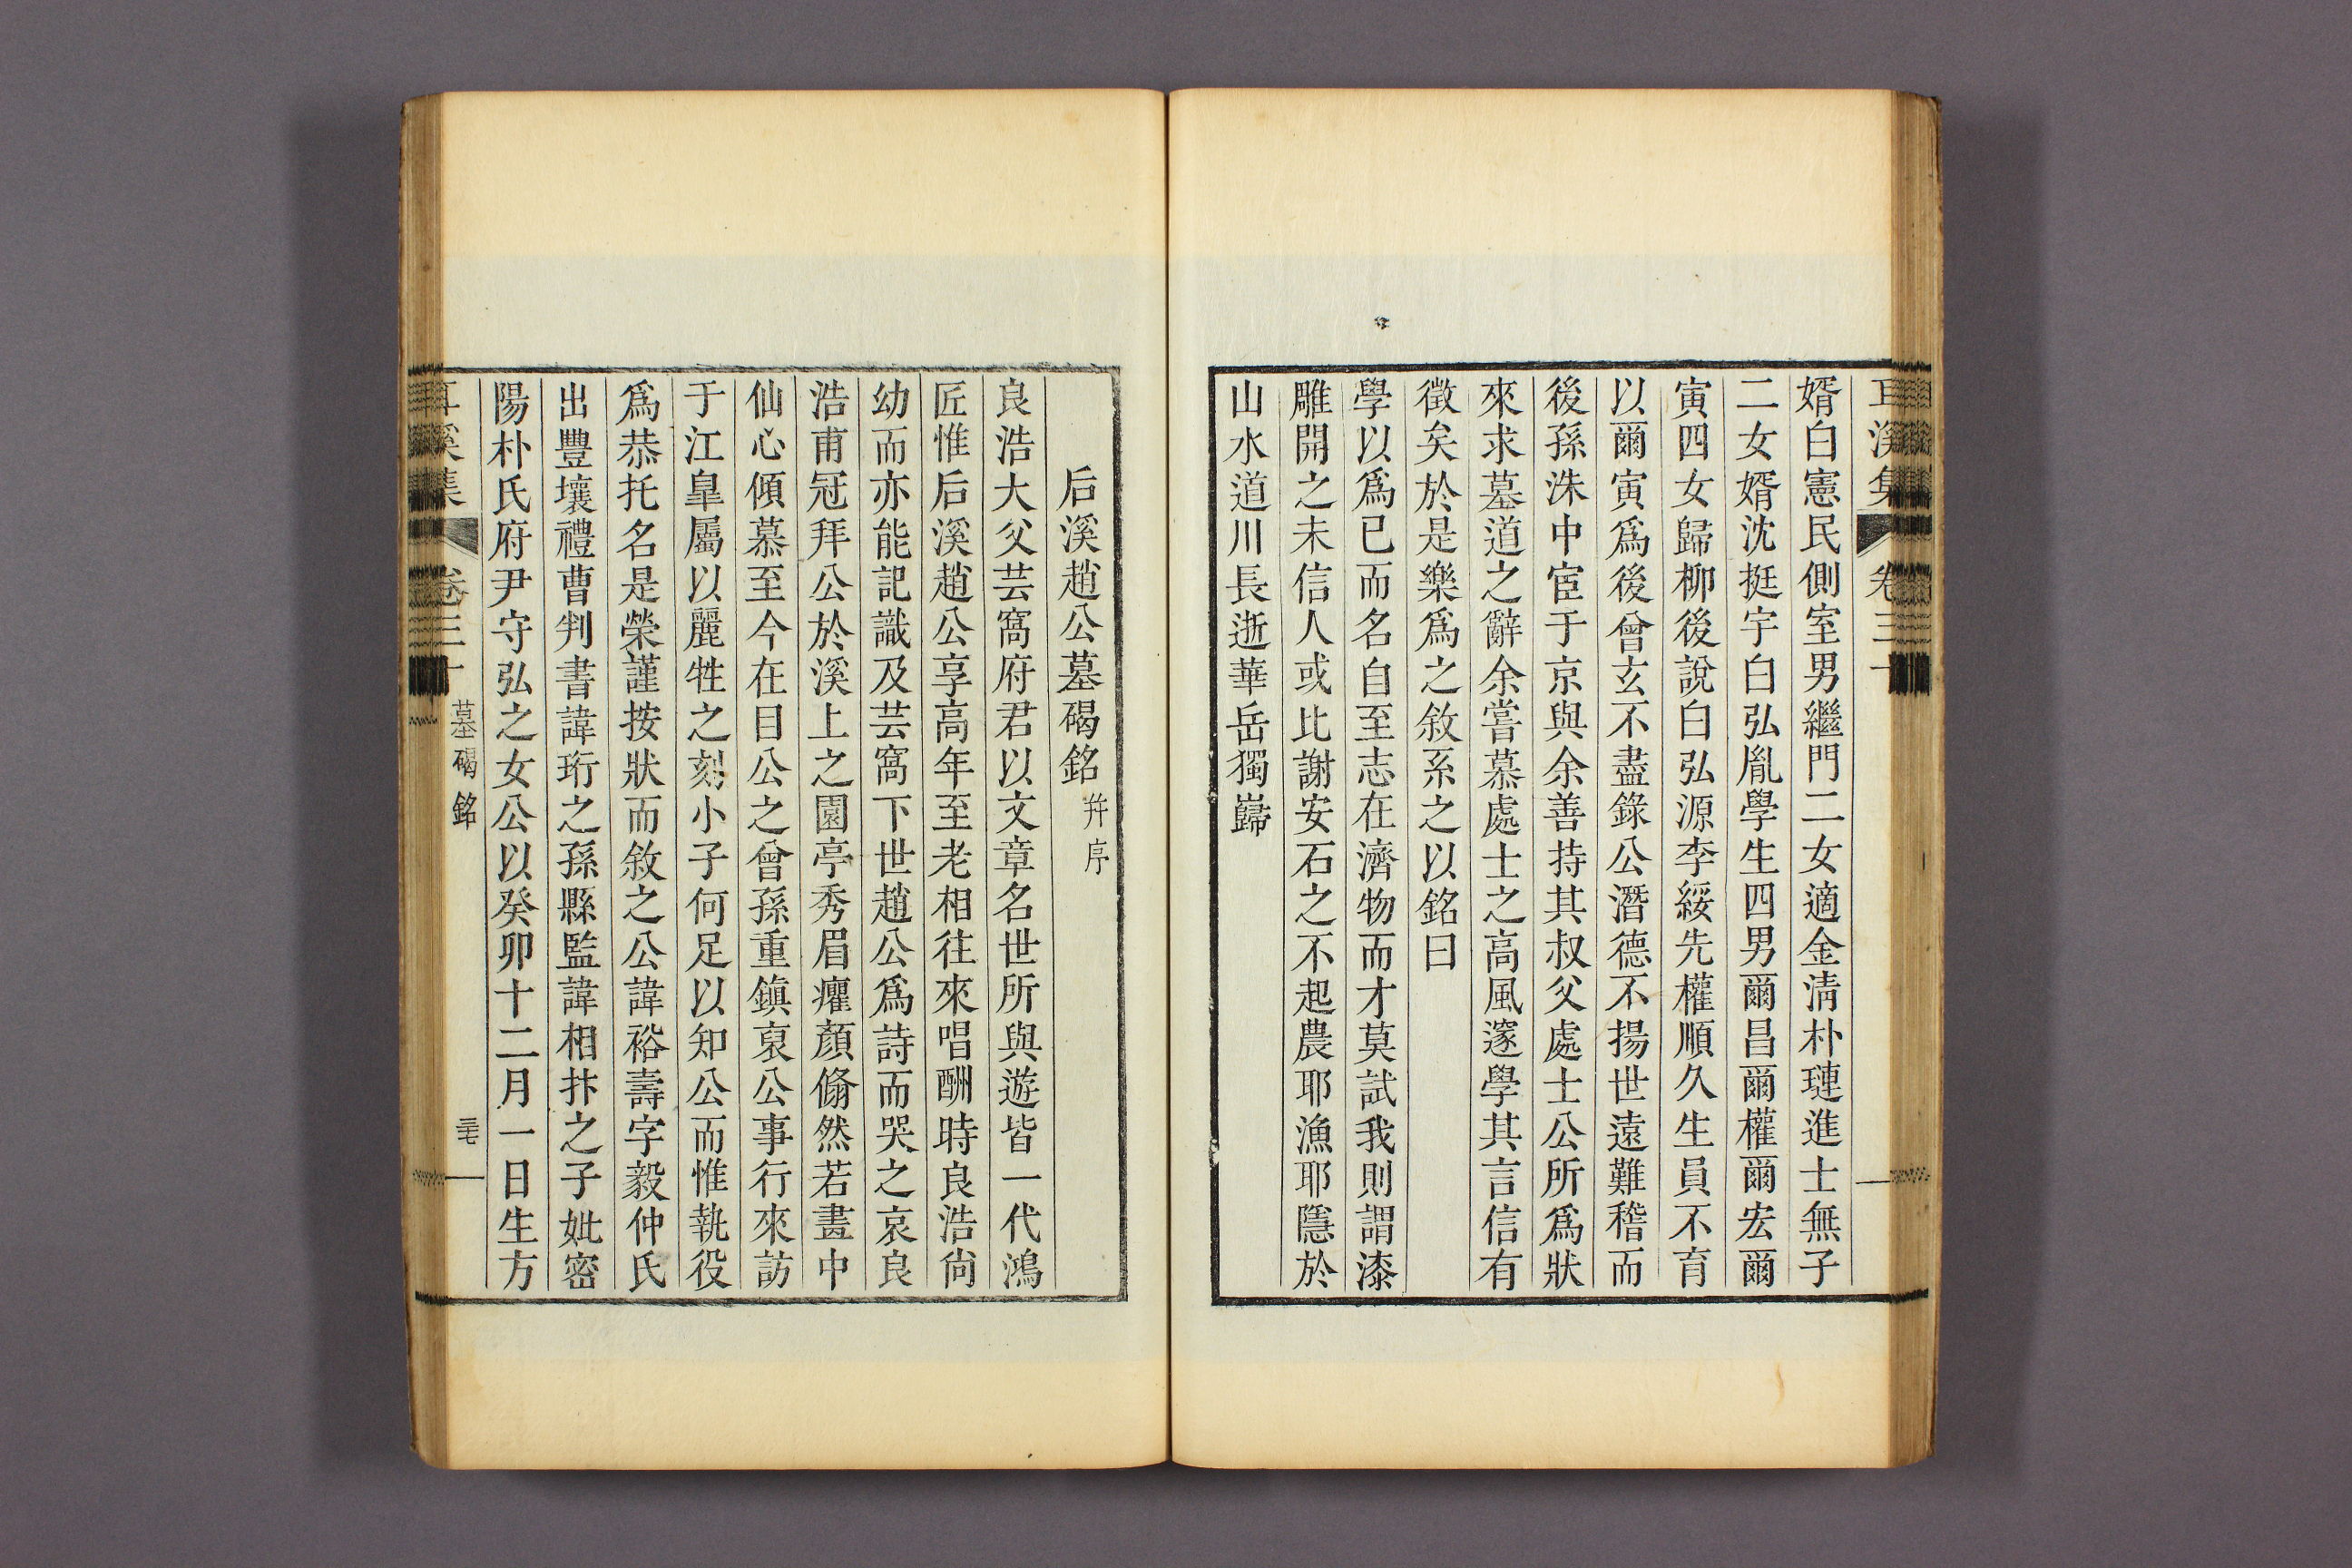 耳溪集 卷三十
婿白憲民側室男繼門二女適金淸朴璉進士無子
二女婿沈挺宇白弘胤學生四男爾昌爾權爾宏爾
寅四女歸柳後說白弘源李綏先權順久生員不育
以爾寅爲後曾玄不盡錄公潛德不揚世遠難稽而
後孫洙中宦于京與余善持其叔父處士公所爲狀
來求墓道之辭余嘗慕處士之高風邃學其言信有
徵矣於是樂爲之敘系之以銘曰
學以爲已而名自至志在濟物而才莫試我則謂漆
雕開之未信人或比謝安石之不起農耶漁耶隱於
山水道川長逝華岳獨巋
后溪趙公墓碣銘 幷序
良浩大父芸窩府君以文章名世所與遊皆一代鴻
匠惟后溪趙公享高年至老相往來唱酬時良浩尙
幼而亦能記識及芸窩下世趙公爲詩而哭之哀良
浩甫冠拜公於溪上之園亭秀眉癯顏翛然若畫中
仙心傾慕至今在目公之曾孫重鎭裒公事行來訪
于江皐屬以麗牲之刻小子何足以知公而惟執役
爲恭托名是榮謹按狀而敘之公諱裕壽字毅仲氏
出豐壤禮曹判書諱珩之孫縣監諱相抃之子妣密
陽朴氏府尹守弘之女公以癸卯十二月一日生方
耳溪集 卷三十 墓碣銘 三七